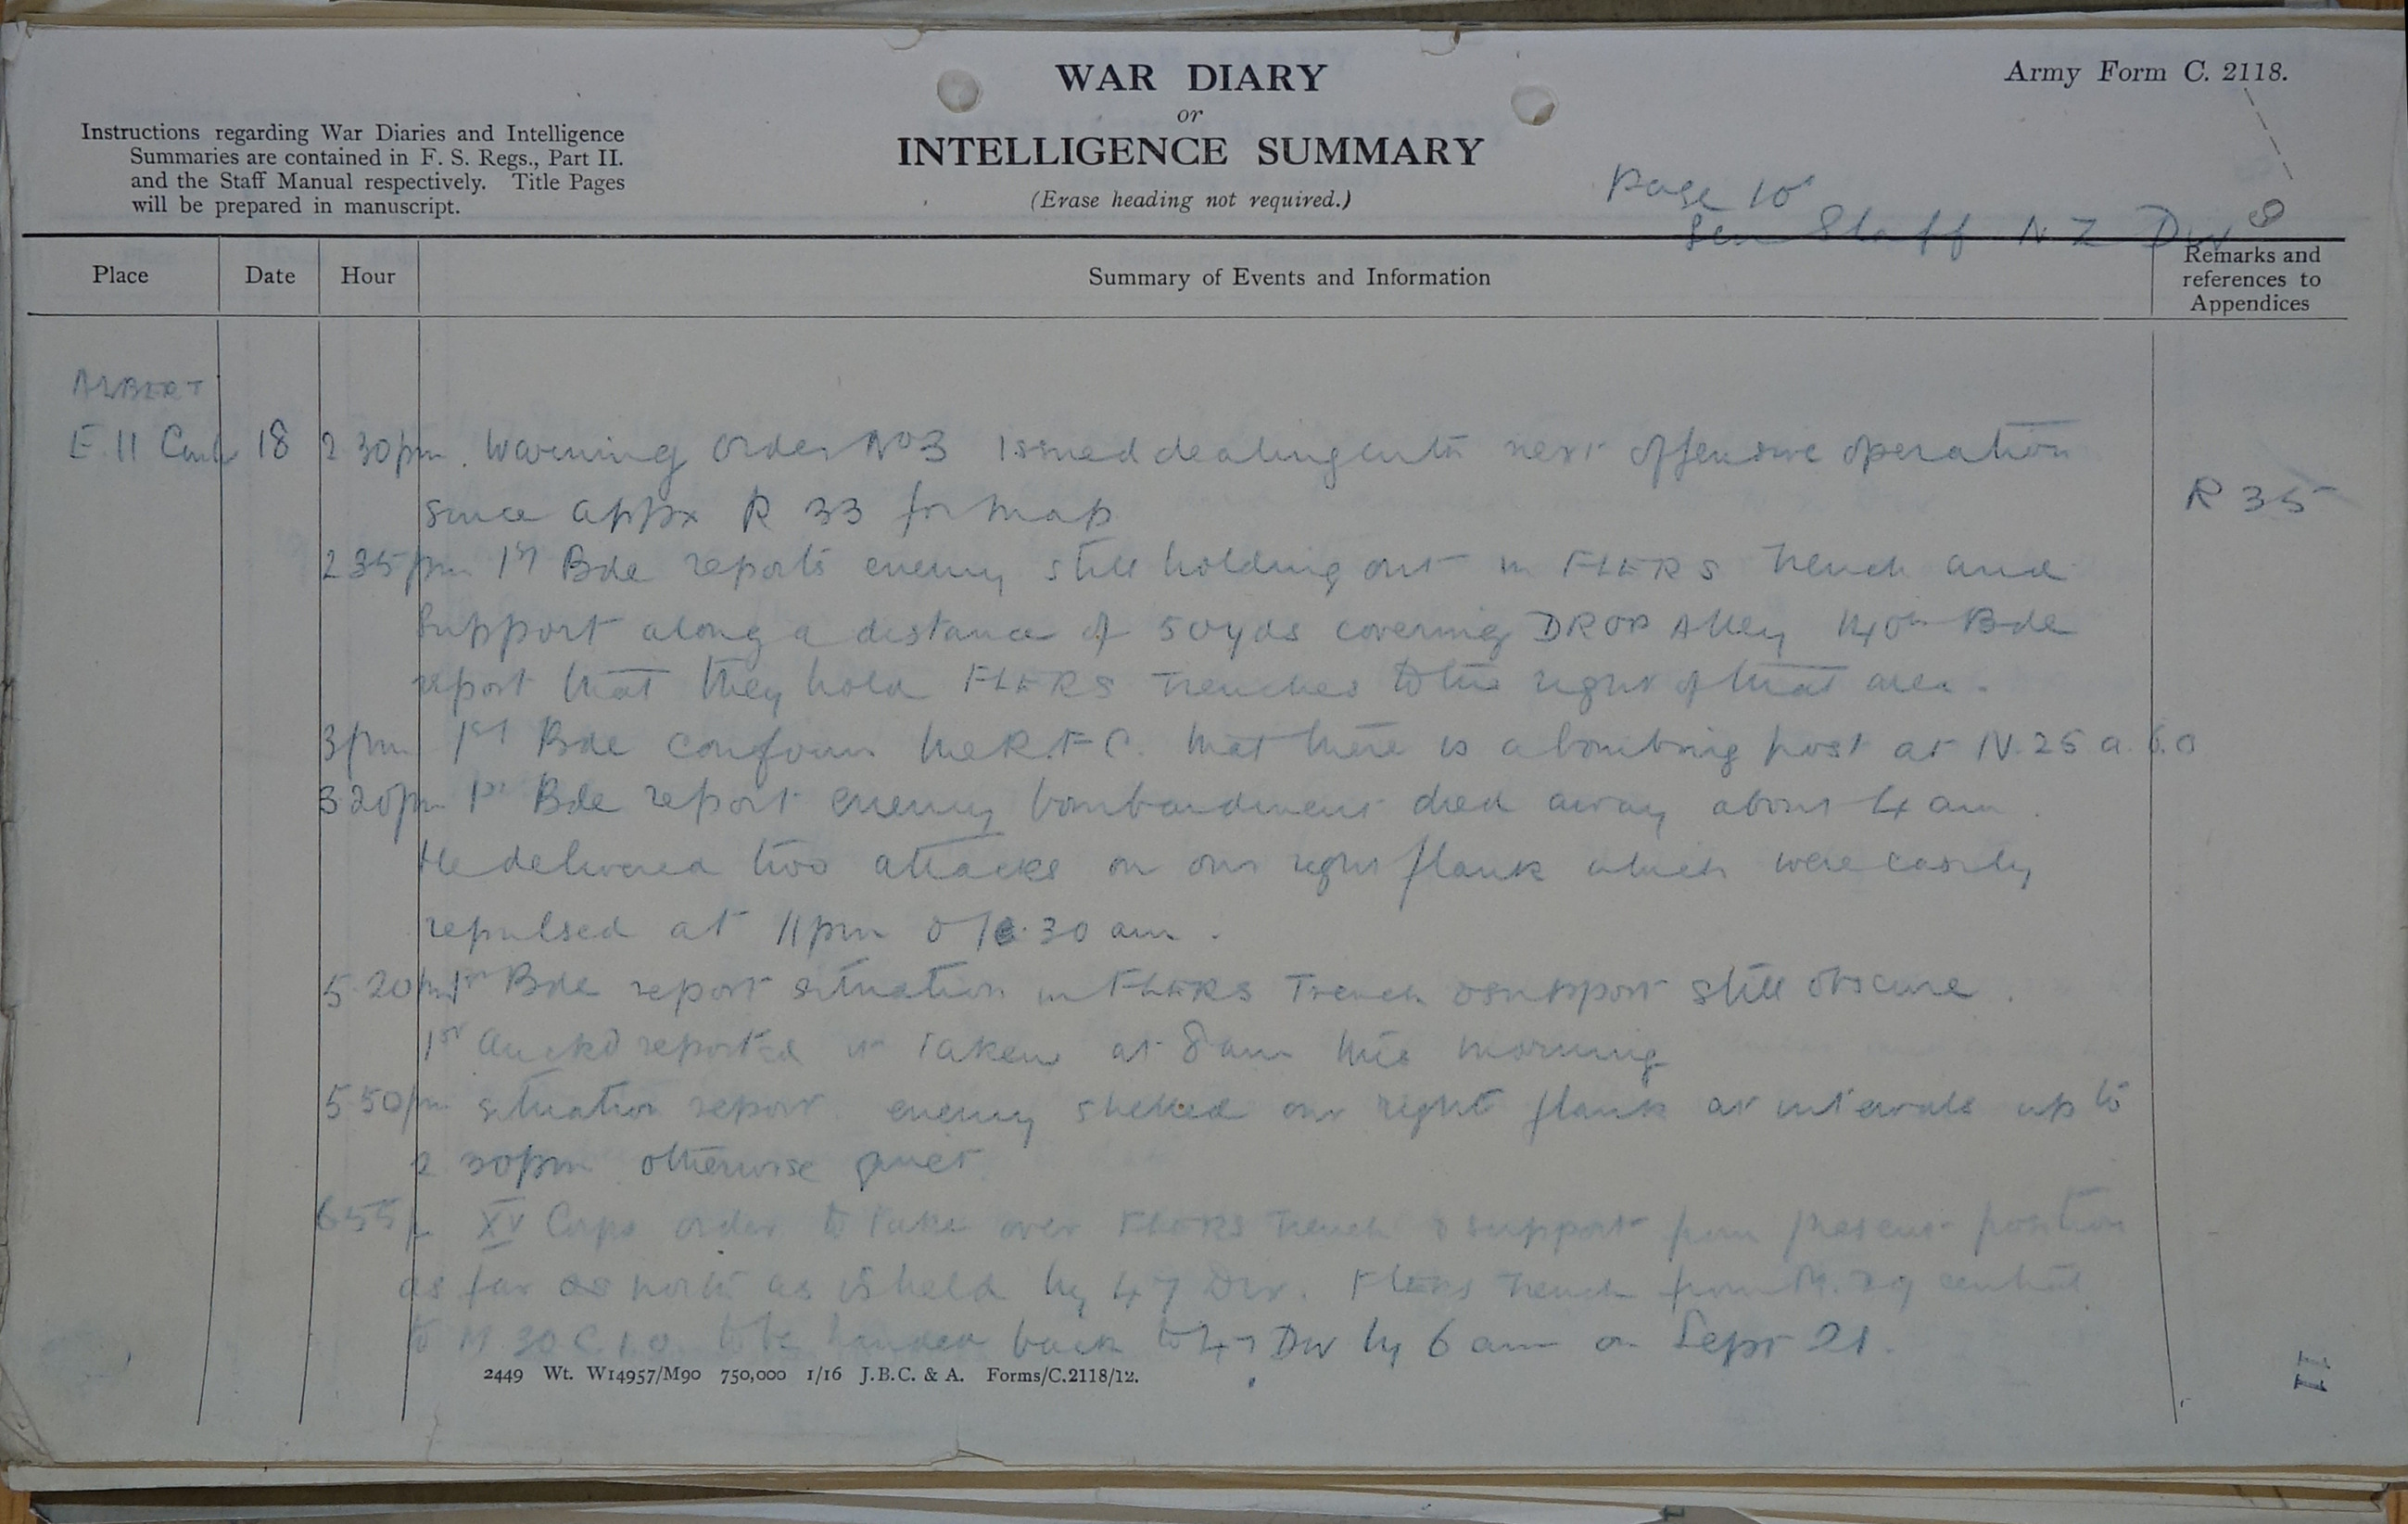 WAR DIARY
or
INTELLIGENCE SUMMARY
(Erase heading not required.)
Army Form C. 2118.
Instructions regarding War Diaries and Intelligence
Summaries are contained in F. S. Regs., Part II.
and the Staff Manual respectively. Title Pages
will be prepared in manuscript.
Page 10
Gen Staff N Z Div
Place
Date
Hour
Summary of Events and Information
Remarks and
references to
Appendices
ALBERT
E 11 Cent 18 2 30pm. Warning Order No 3 issued dealing with next offensive operation
since appx R 33 for map
R 35
2 35pm 1st Bde reports enemy still holding out in FLERS Trench and
Support along a distance of 50yds covering DROP Alley 140th Bde
report that they hold FLERS Trenches to the right of that area.
3pm 1st Bde confirm the R.F C. that there is a bombing post at N. 25 a. 6.0
3 20pm 1st Bde report enemy bombardment died away about 4 am.
He delivered two attacks on our right flank which were easily
repulsed at 11pm & 30 am.
5.20pm 1st Bde report situation in FLERS Trench & support still obscure.
1st Auckd reported it taken at 8 am this morning
5.50pm situation report. enemy shelled our right flank at intervals up to
2 30pm otherwise quiet
6 55p XV Corps order to take over FLERS Trench & support from present position
as far as north as is held by 47 Div. FLERS Trench from M. 29 central
to M 30 C. 1.0 to be handed back to 47 Div by 6 am on Sept 21.
2449 Wt. W14957/M90 750,000 1/16 J.B.C. & A. Forms/C.2118/12.
11